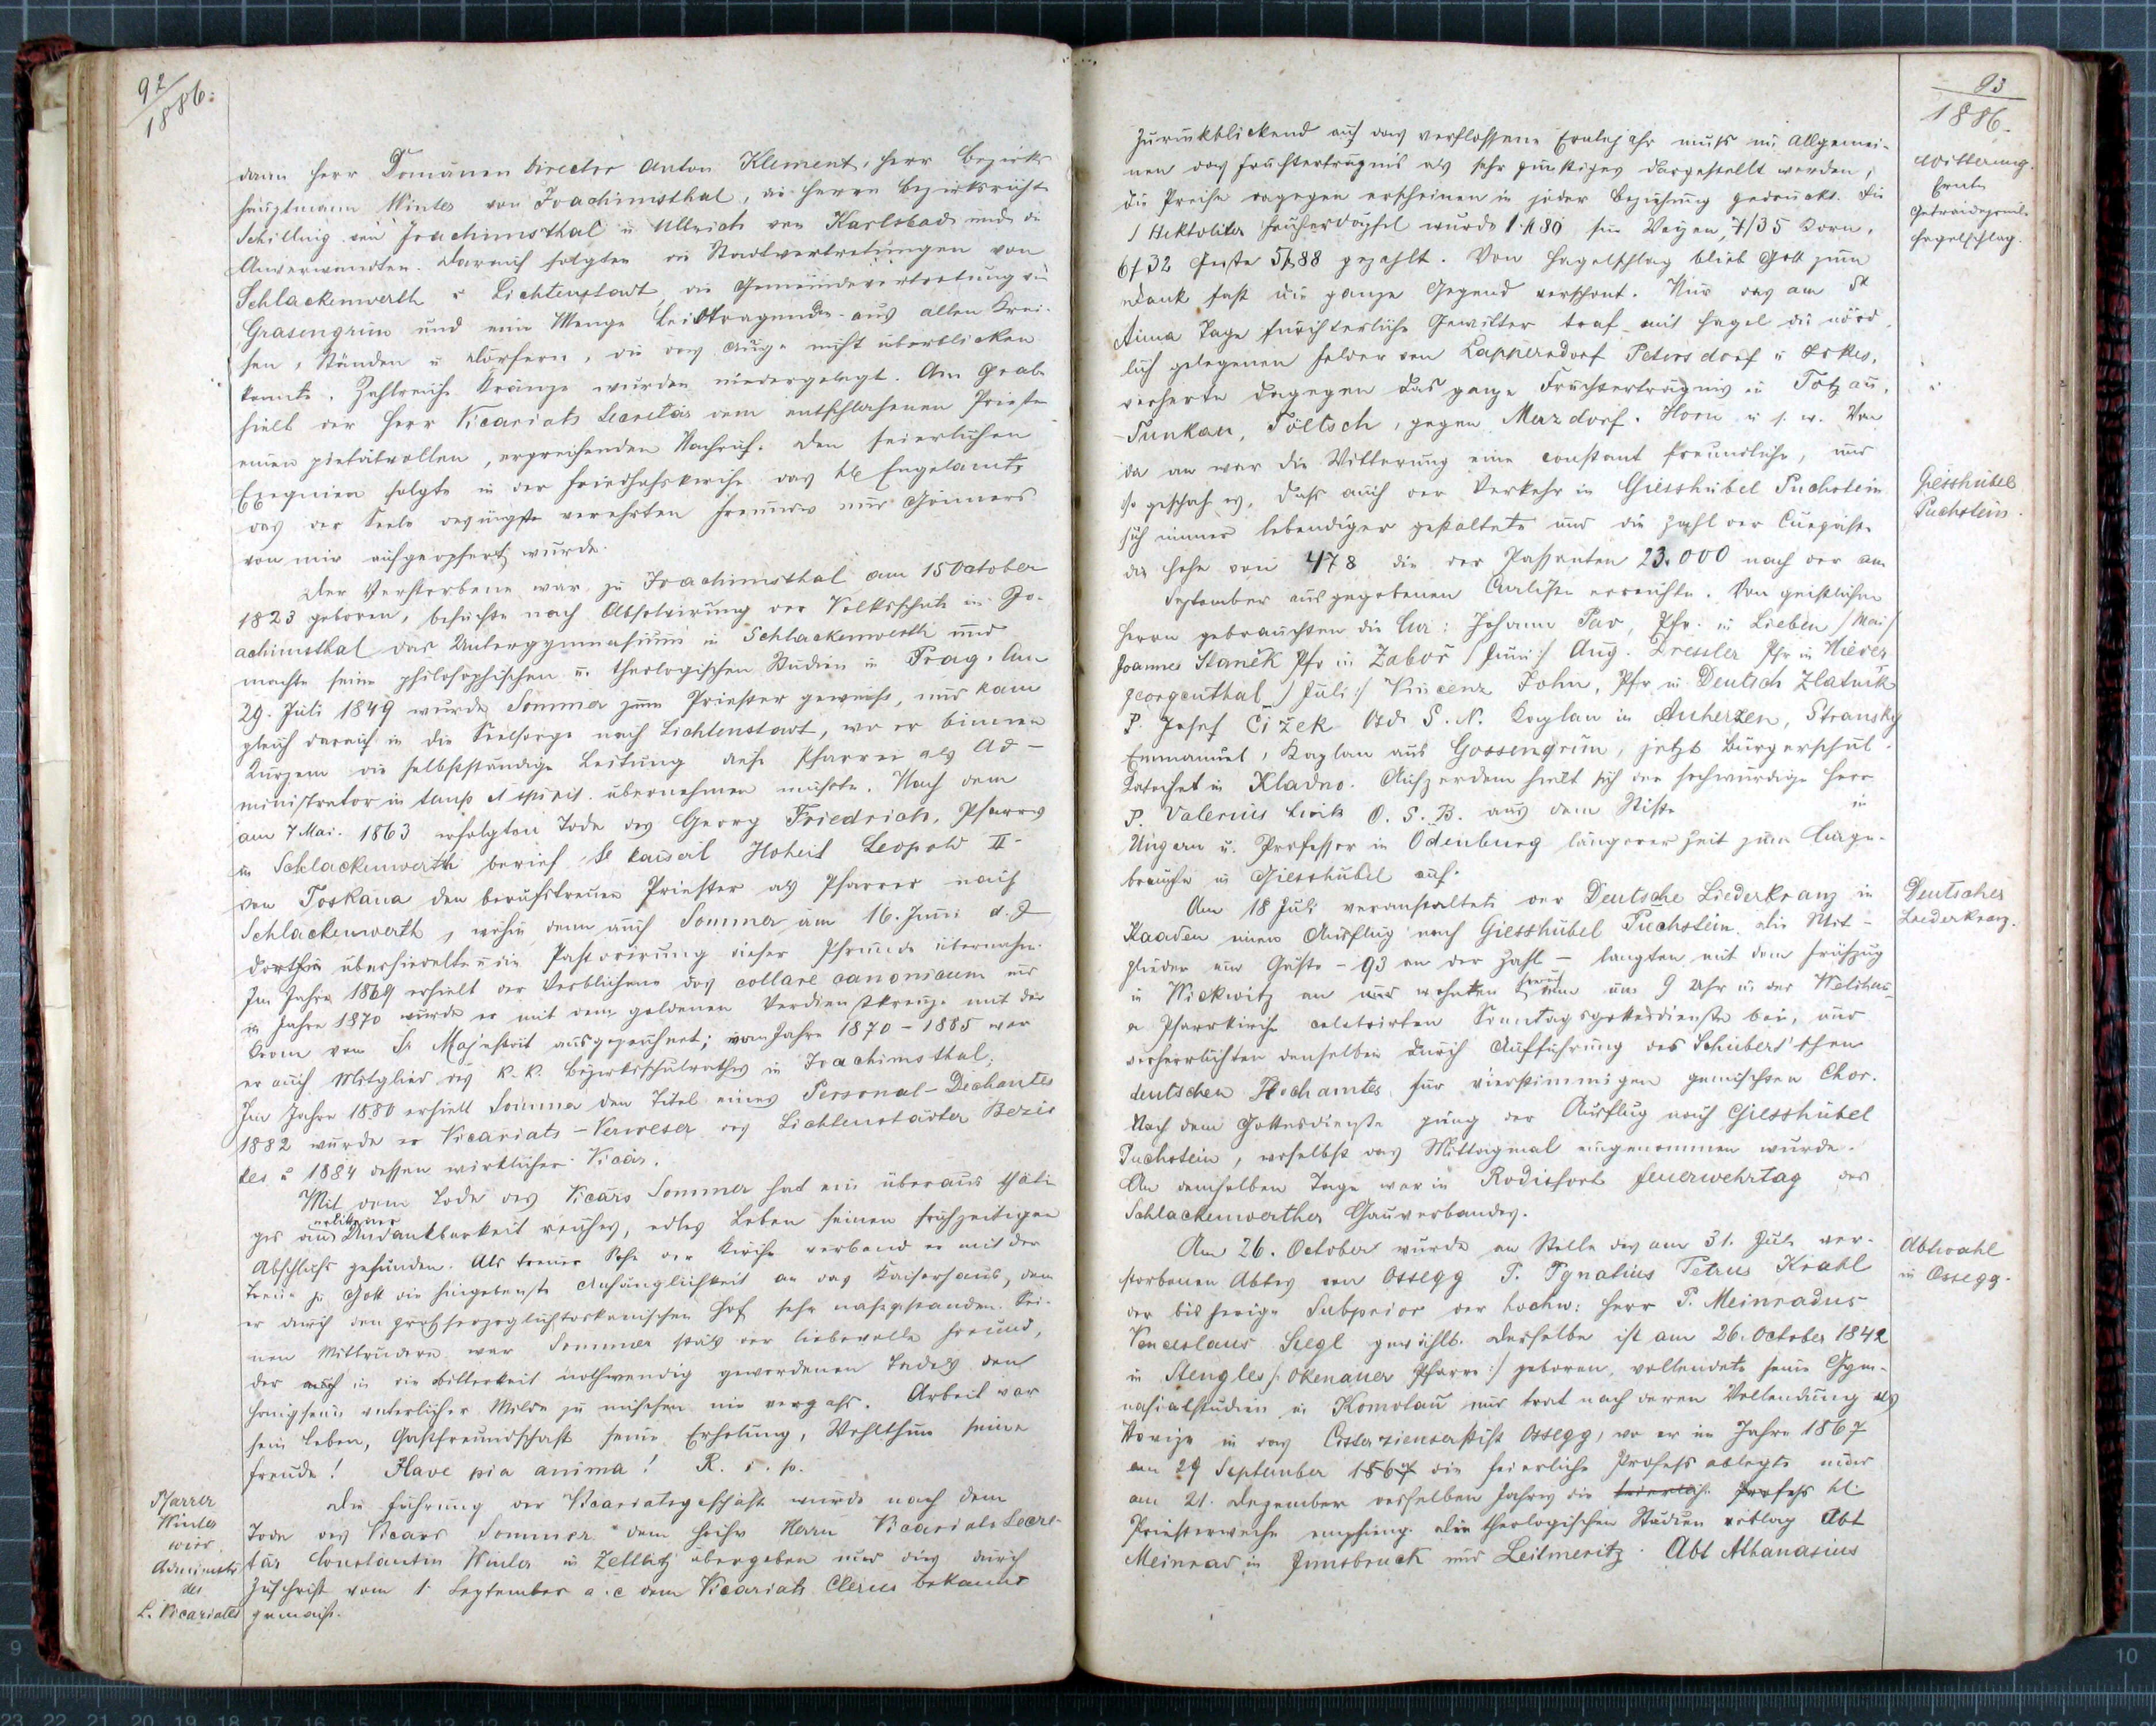 92
1886.
dann Herr Domänen Director Anton Klement, Herr Bezirks
hauptmann Winter von Joachimsthal, die Herren Bezirksrichter
Schilling von Joachimsthal u Ullrich von Karlsbad und die
Anverwandten. Darauf folgten die Stadtvertretungen von
Schlackenwerth u Lichtenstadt, die Gemeindevertretung von
Grasengrün und eine Menge Leidtragender aus allen Krei-
sen, Ständen u Dörfern, die das Auge nicht überblicken
konnte. Zahlreiche Kränze wurden niedergelegt. Am Grabe
hielt der Herr Vicariats Secretär dem entschlafenen Priester
einen pietätvollen, ergreifenden Nachruf. Den feierlichen
Exequien folgte in der Friedhofskirche das hl Engelamt,
das der Seele des innigst verehrten Freundes und Gönners
von mir aufgeopfert wurde.
Der Verstorbene war zu Joachimsthal am 15 October
1823 geboren, besuchte nach Absolvirung der Volksschule in Jo-
achimsthal das Untergymnasium in Schlackenwerth und
machte seine philosophischen u. theologischen Studien in Prag. Am
29. Juli 1849 wurde Sommer zum Priester geweiht, und kam
gleich darauf in die Seelsorge nach Lichtenstadt, wo er binnen
Kurzem die selbstständige Leitung dieser Pfarrei als Ad-
ministrator in temp et spirit. übernehmen mußte. Nach dem
am 7 Mai. 1863 erfolgten Tode des Georg Friedrich, Pfarrers
in Schlackenwerth berief Se kaiserl Hoheit Leopold II
von Toskana den berufstreuen Priester als Pfarrer nach
Schlackenwerth, wohin denn auch Sommer am 16. Juni d. J
dorthin übersiedelte u die Pastorirung dieser Pfründe übernahm.
Im Jahre 1869 erhielt der Verblichene das collare canonicum und
im Jahre 1870 wurde er mit dem goldenen Verdienstkreuze mit der
Krone von Sr Majestät ausgezeichnet; vom Jahre 1870-1885 war
er auch Mitglied des k. k. Bezirksschulrathes in Joachimsthal;
Im Jahre 1880 erhielt Sommer den Titel eines Personal-Dechantes
1882 wurde er Vicariats-Verweser des Lichtenstadter Bezir
kes u 1884 dessen wirklicher Vicär.
Mit dem Tode des Vicärs Sommer hat ein überaus thäti
ges an Undankbarkeit reiches, edles Leben seinen frühzeitigen
Abschluß gefunden. Als treuer Sohn der Kirche verband er mit der
Treue zu Gott die hingebenste Anhänglichkeit an das Kaiserhaus, dem
er durch den großherzoglich toskanischen Hof sehr nahegestanden. Sei-
nen Mitbrüdern war Sommer stets der liebevolle Freund,
der auch in die Bitterkeit nothwendig gewordenen Tadels den
Honigseim väterlicher Milde zu mischen nie vergaß. Arbeit war
sein Leben, Gastfreundschaft seine Erholung, Wohlthun seine
Freude! Have pia anima! R. i. p.
Pfarrer
Winter
wird
Administr
des
L. Vicariates
Die Führung der Vicariatsgeschäfte wurde nach dem
Tode des Vicars Sommer dem hochw Herrn Vicariats Secre-
tär Constantin Winter in Zettlitz übergeben und dies durch
Zuschrift vom 1. September a. c dem Vicariats Clerus bekannt
gemacht.
93
1886.
Zurückblickend auf das verflossene Erntejahr muß im Allgemei-
nen das Fruchterträgnis als sehr günstiges dargestellt werden,
die Preise dagegen erscheinen in jeder Beziehung gedrückt. Für
1 Hektoliter wurde 1 fl 80 für Weizen, 7/35 Korn,
6f 32 Gerste 5f 88 gezahlt. Von Hagelschlag blieb Gott zum
Dank fast die ganze Gegend verschont. Nur das am St
Anna Tage fürchterliche Gewitter traf mit Hagel die nörd
lich gelegenen Felder von Lappersdorf Petersdorf u
verheerte dagegen das ganze Fruchterträgnis in Totzau,
Tunkau, Töltsch, gegen Merzdorf, Horn u. s. w. Von
da an war die Witterung eine constant freundliche, und
so geschah es, daß auch der Verkehr in Giesshübel Puchstein
sich immer lebendiger gestaltete und die Zahl der Curgäste
die Höhe von 478 die der Passanten 23.000 nach der am
September ausgegebenen Curliste erreichte. Von geistlichen
Herrn gebrauchten die Cur: Johann Pav, Pfr. in Lieben /Mai/
Joannes Stanĕk Pfr in Zaboř / Juni:/ Aug. Dressler Pfr in Nieder
georgenthal / Juli:/ Vincenz John, Pfr in Deutsch Zlatnik
P. Josef Čížek Kaplan in Auherzen, Stransky
Emmanuel, Kaplan aus Gossengrün, jetzt Bürgerschul-
katechet in Kladno. Außerdem hielt sich der hochwürdige Herr
P. Valerius O. S. B. aus dem Stifte in
Ungarn u. Professor in Ödenburg längerer Zeit zum Curge-
brauche in Giesshübel auf.
Am 18 Juli veranstaltete der Deutsche Liederkranz in
Kaaden einen Ausflug nach Giesshübel Puchstein. Die Mit-
glieder und Gäste - 93 an der Zahl - langten mit dem Frühzug
in Wickwitz an und wohnten dem um 9 Uhr in der Welchau-
er Pfarrkirche celebrirten Sonntagsgottesdienste bei, und
verherrlichten denselben durch Aufführung des Schubert'schen
deutschen Hochamtes für vierstimmigen gemischten Chor.
Nach dem Gottesdienste ging der Ausflug nach Giesshübel
Puchstein, woselbst das Mittagmal eingenommen wurde.
An demselben Tage war in Rodisfort Feuerwehrtag des
Schlackenwerther Gauverbandes.
Am 26. October wurde an Stelle des am 31. Juli ver-
storbenen Abtes von Ossegg P. Ignatius Petrus Krahl
der bisherige Subprior der hochw: Herr P. Meinradus
Venceslaus Siegl gewählt. Derselbe ist am 26. October 1842
in Stengles /: Okenauer Pfarre:/ geboren, vollendete seine Gym-
nasialstudien in Komotau und trat nach deren Vollendung als
Novize in das Cisterzienserstift Ossegg, wo er im Jahre 1867
am 29 September 1867 die feierliche Profeß ablegte und
am 21. Dezember desselben Jahres die feierliche Profeß hl.
Priesterweihe empfing. Die theologischen Studien oblag Abt
Meinrad in Innsbruck und Leitmeritz. Abt Athanasius
Witterung.
Ernte
Getreidepreise
Hagelschlag.
Giesshübel
Puchstein.
Deutscher
Liederkranz.
Abtwahl
in Ossegg.